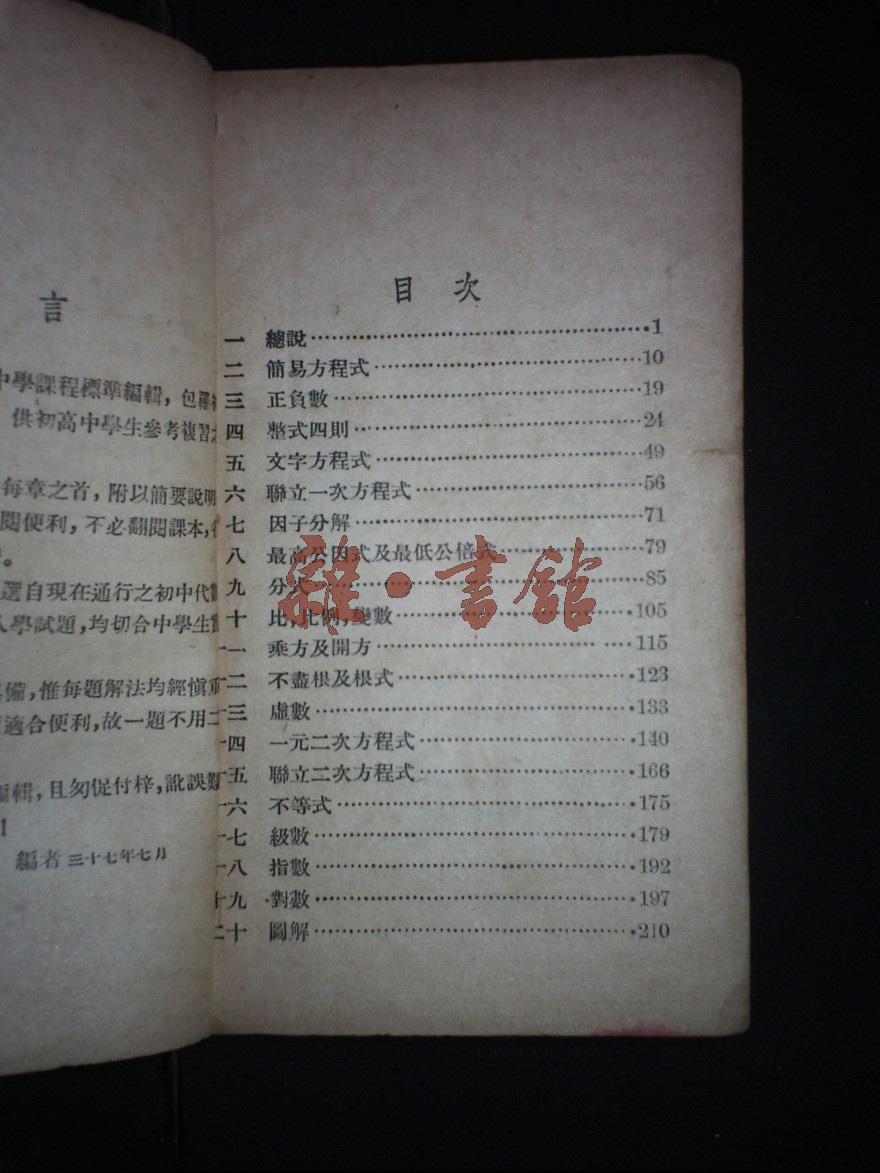 言
中學課程標準編輯，包羅
供初高中學生參考複習
每章之首，附以簡要說明
閱便利，不必翻閱課本，
。
選自現在通行之初中代數
入學試題，均切合中學生
備，惟每題解法均經慎重
適合便利，故一題不用二
編輯，且匆促付梓，訛誤難
！
編者 三十七年七月
目次
一 總說 1
二 簡易方程式 10
三 正負數 19
四 整式四則 24
五 文字方程式 49
六 聯立一次方程式 56
七 因子分解 71
八 最高公因式及最低公倍式 79
九 分式 85
十 比，比例，變數 105
十一 乘方及開方 115
十二 不盡根及根式 123
十三 虛數 133
十四 一元二次方程式 140
十五 聯立二次方程式 166
十六 不等式 175
十七 級數 179
十八 指數 192
十九 對數 197
二十 圖解 210
雜·書館